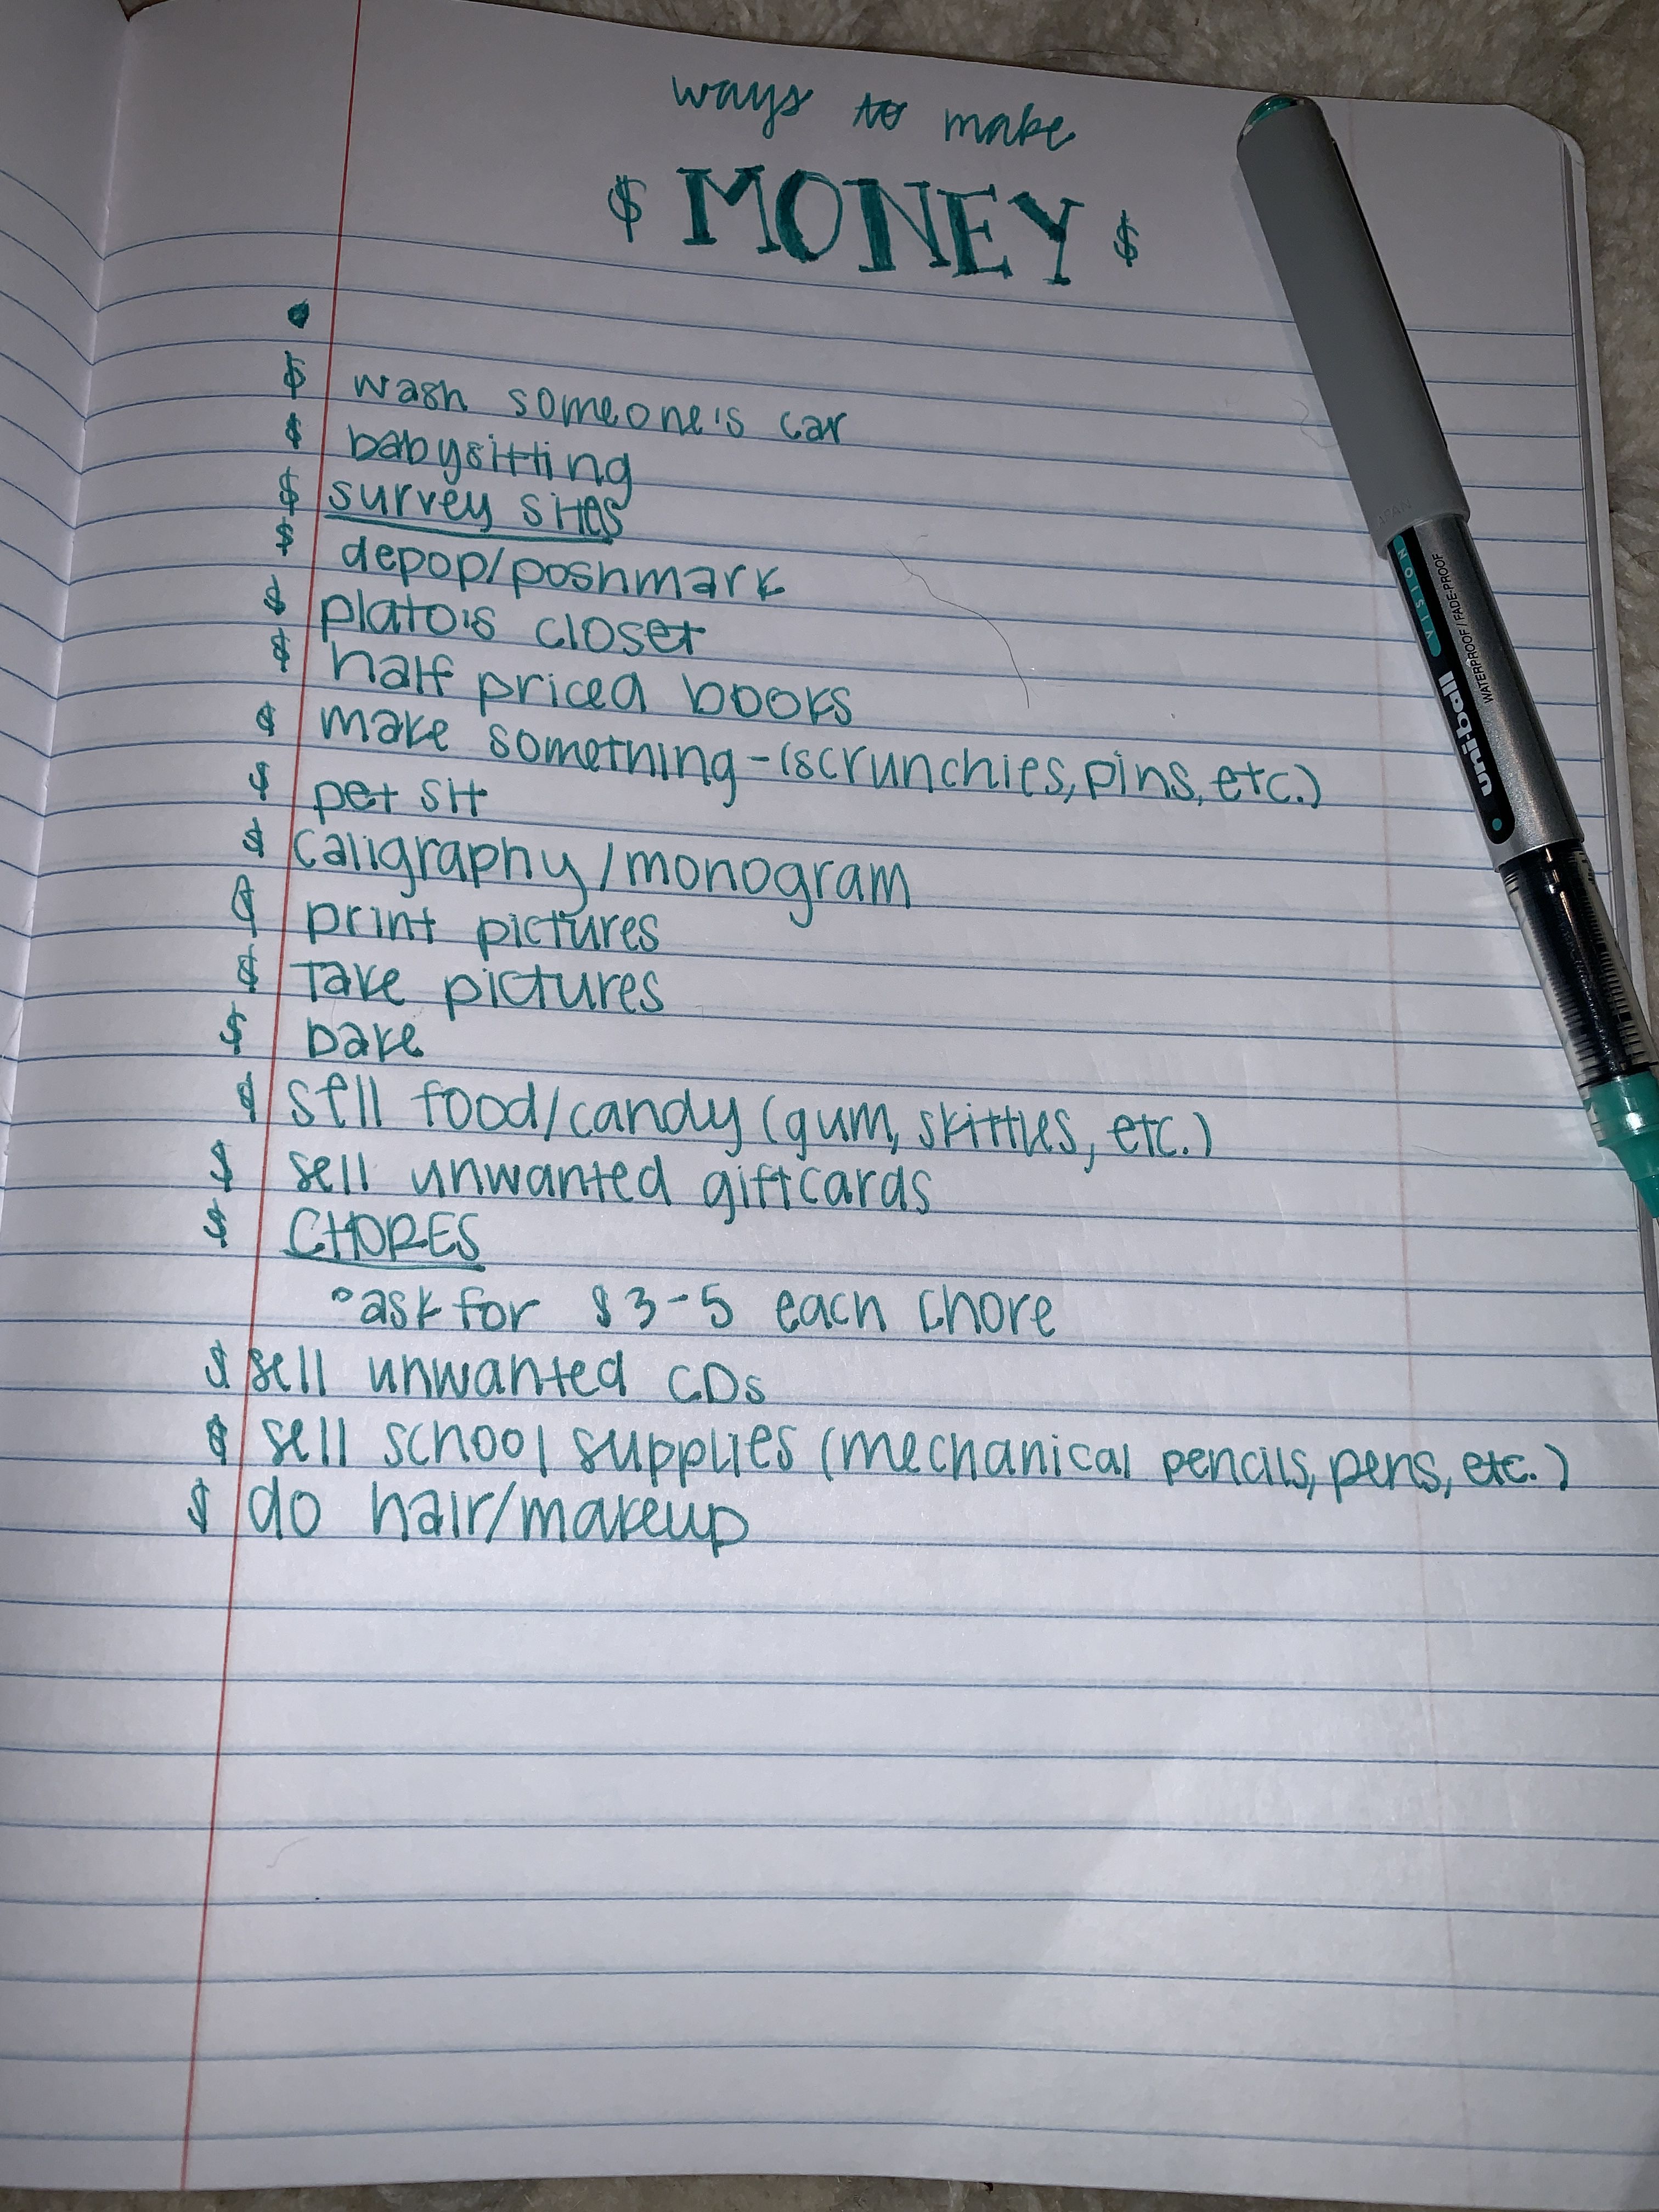 ways to make
$ MONEY $
$ wash someone's car
$ babysitting
$ survey sites
$ depop/poshmark
$ plato's closet
$ half priced books
$ make something-(scrunchies, pins, etc.)
$ pet sit
$ caligraphy/monogram
$ print pictures
$ take pictures
$ bake
$ sell food/candy (gum, skittles, etc.)
$ sell unwanted giftcards
$ CHORES
°ask for $3-5 each chore
$ sell unwanted CDs
$ sell school supplies (mechanical pencils, pens, etc.)
$ do hair/makeup
JAPAN
VISION
uni-ball
WATERPROOF / FADE-PROOF